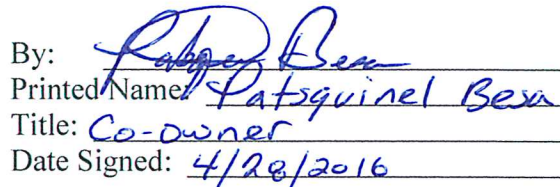 By:
Printed Name: Patsquinel Besa
Title: Co-owner
Date Signed: 4/28/2016